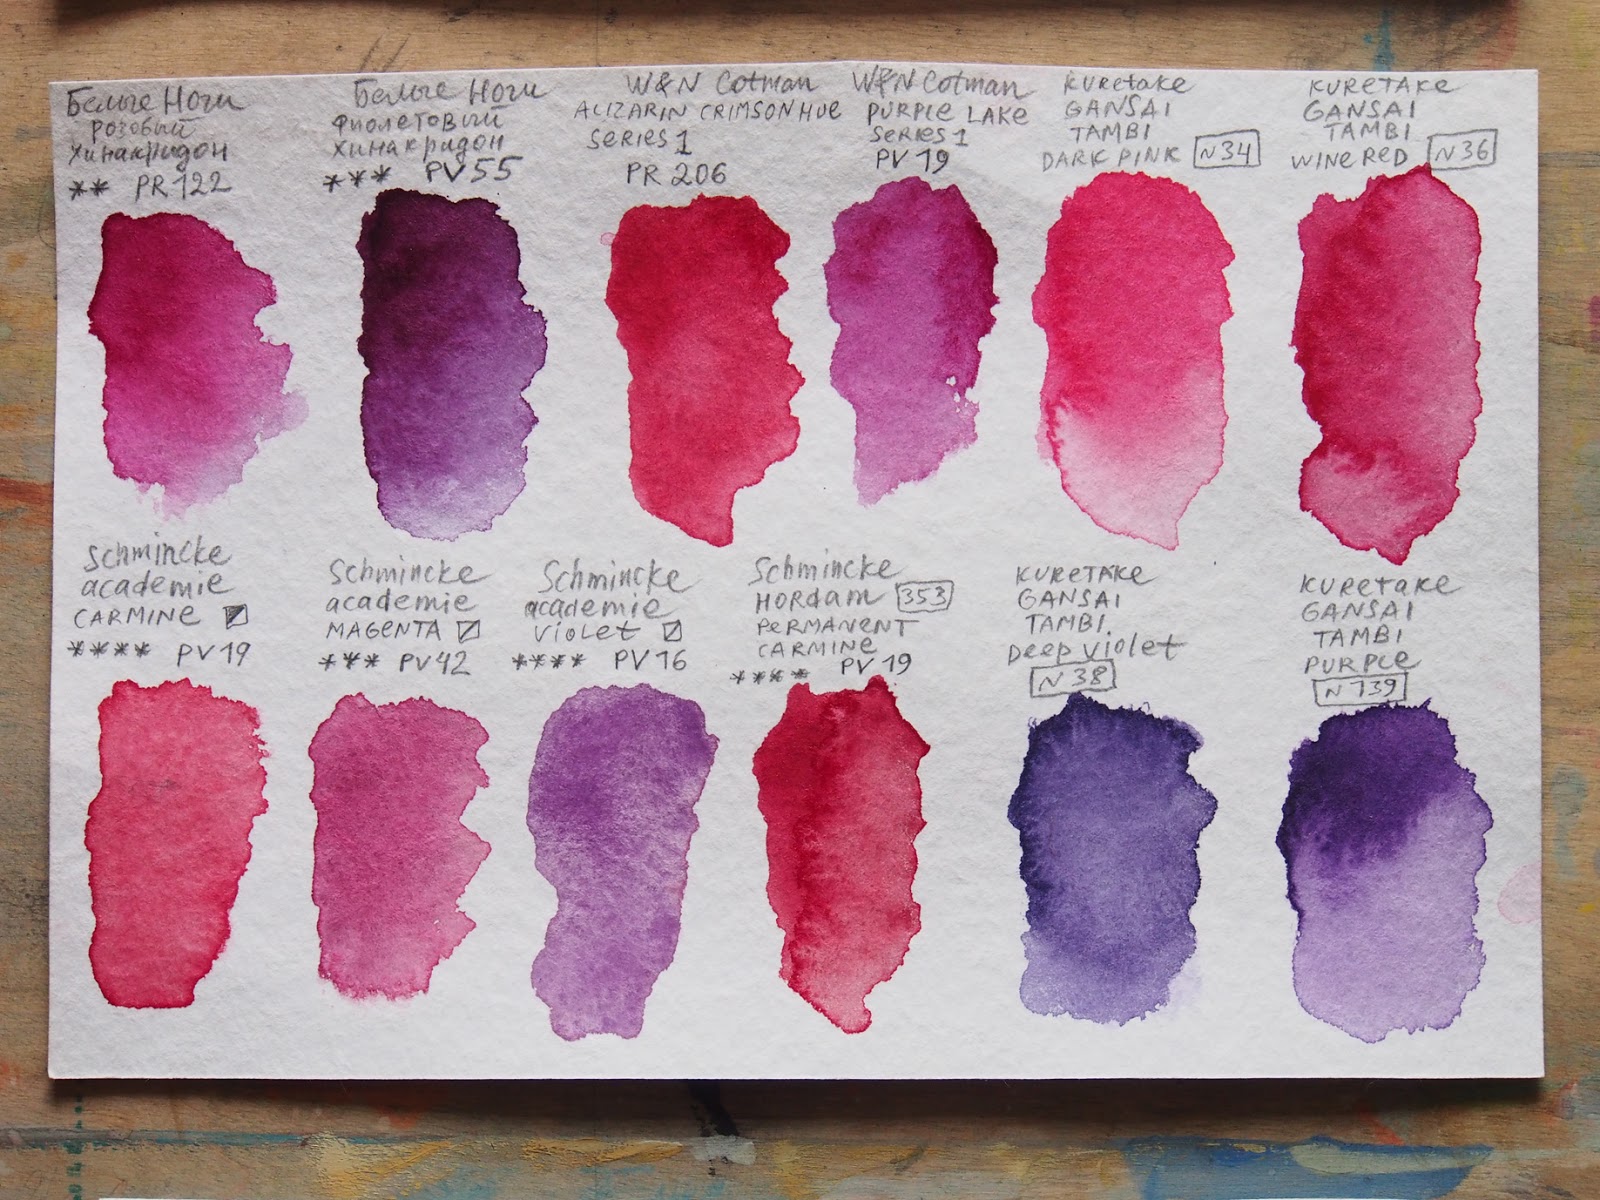 Белые Ночи
розовый
хинакридон
** PR 122
Белые Ночи
фиолетовый
хинакридон
*** PV 55
W&N Cotman
ALIZARIN CRIMSON HUE
SERIES 1
PR 206
W&N Cotman
PURPLE LAKE
SERIES 1
PV 19
KURETAKE
GANSAI
TAMBI
DARK PINK N34
KURETAKE
GANSAI
TAMBI
WINE RED N36
Schmincke
academie
CARMINE
**** PV19
Schmincke
academie
MAGENTA
*** PV42
Schmincke
academie
VIOLET
**** PV16
Schmincke
HORdam 353
PERMANENT
CARMINE
**** PV19
KURETAKE
GANSAI
TAMBI.
Deep violet
N38
KURETAKE
GANSAI
TAMBI
PURPLE
N 139